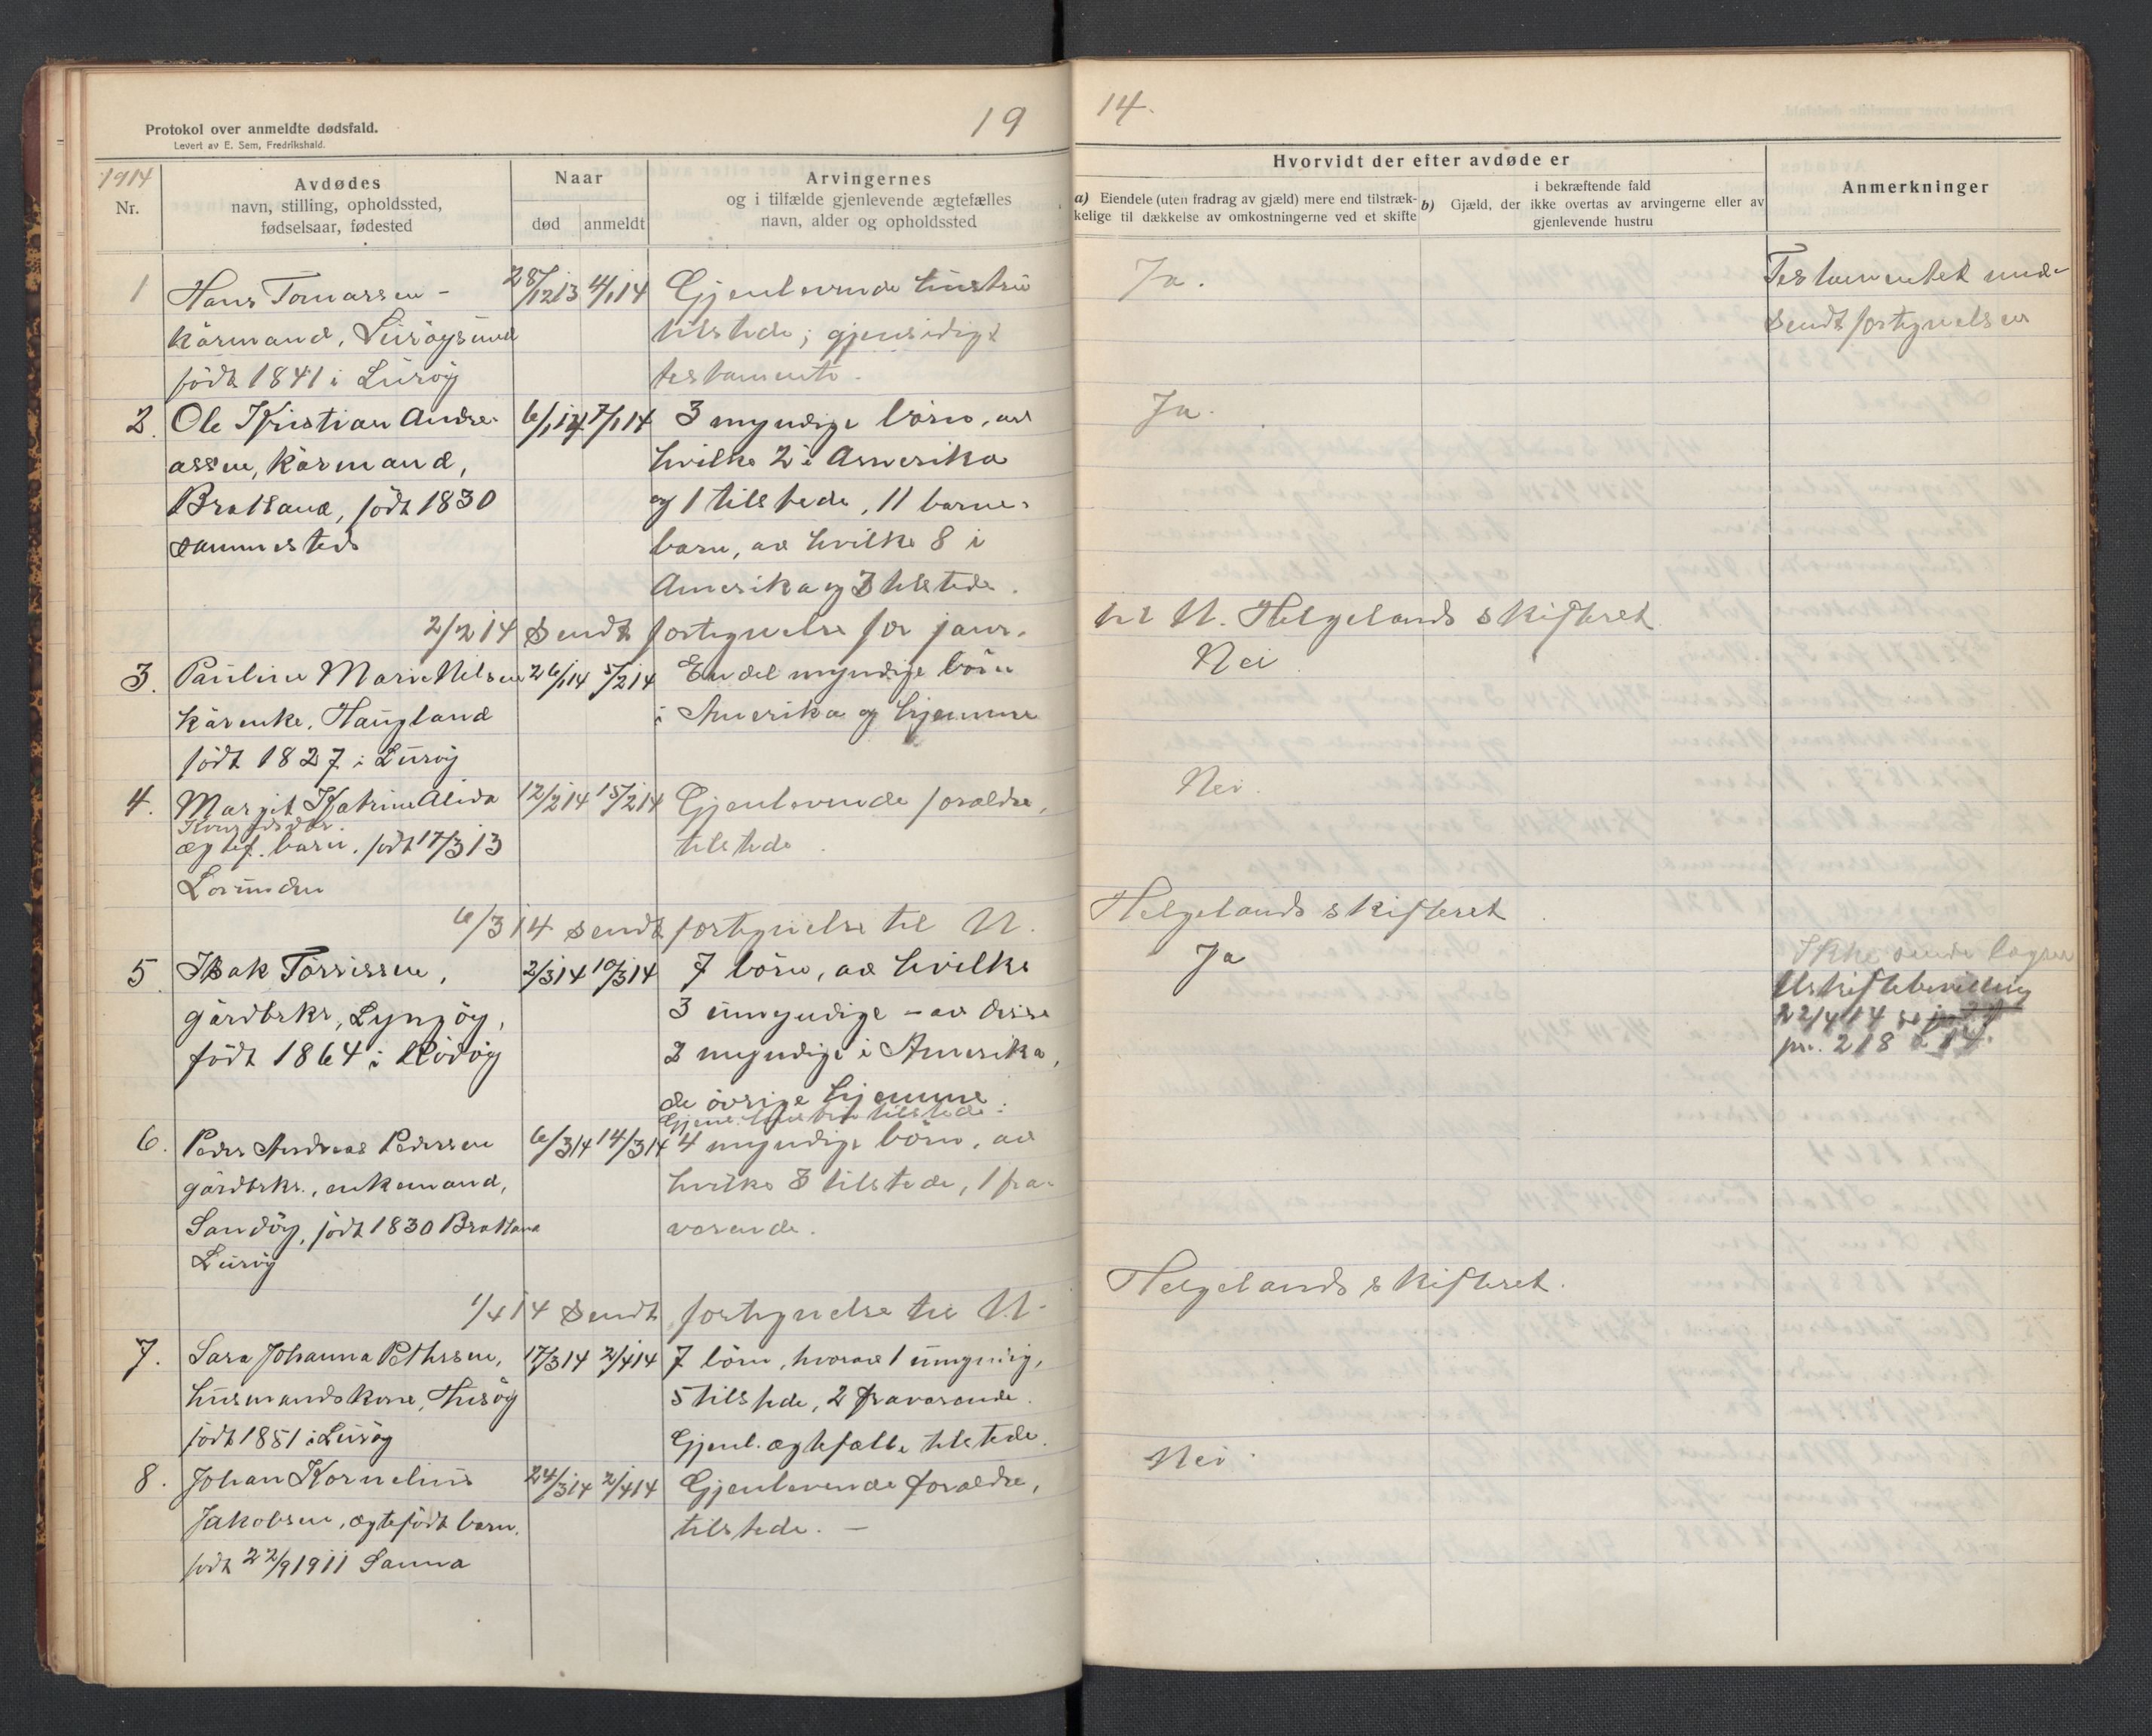 Protokol over anmeldte dødsfald.
Levert av E. Sem, Fredrikshald.
19
14.
1914
Nr.
Avdødes
navn, stilling, opholdssted,
fødselsaar, fødested
Naar
død
anmeldt
Arvingernes
og i tilfælde gjenlevende ægtefælles
navn, alder og opholdssted
Hvorvidt der efter avdøde er
a) Eiendele (uten fradrag av gjæld) mere end tilstræk-
kelige til dækkelse av omkostningerne ved et skifte
i bekræftende fald
b) Gjæld, der ikke overtas av arvingerne eller av
gjenlevende hustru
Anmerkninger
1 Hans Tomassen -
kårmand, Lurøysund
født 1841 i Lurøy
28/12 13 4/1 14
Gjenlevende hustru
tilstede; gjensidigt
testamente.
Ja.
Testamentet med-
sendt fortegnelsen
2. Ole Kristian Andre-
assen, kårmand,
Bratland, født 1830
sammesteds
6/1 14 7/1 14
3 myndige børn, av
hvilke 2 i Amerika
og 1 tilstede, 11 barne-
barn, av hvilke 8 i
Amerika og 3 tilstede.
Ja.
2/2 14 Sendt fortegnelse for januar
til N. Helgelands skifteret
3. Pauline Marie Nilsen
kårenke, Haugland
født 1827 i Lurøy
26/1 14 5/2 14
En del myndige børn
i Amerika og hjemme
Nei
4. Margit Katrine Alida
ægtef. barn, født 17/3 13
Lovunden
12/2 14 15/2 14
Gjenlevende forældre,
tilstede.
Nei.
6/3 14 sendt fortegnelse til N.
Helgelands skifteret
5 Isak Torrissen,
gårdbrkr, Lyngøy,
født 1864 i Rødøy
2/3 14 10/3 14
7 børn, av hvilke
3 umyndige - av disse
2 myndige i Amerika,
de øvrige hjemme.
Gjenl. hustru tilstede.
Ja
Ikke
Uskiftebevilling
22/4 14
pr. 218
6. Peder Andreas Pedersen
gårdbrkr., enkemand,
Sandøy, født 1830 Bratland
Lurøy
6/3 14 14/3 14
4 myndige børn, av
hvilke 3 tilstede, 1 fra-
værende.
1/4 14 Sendt fortegnelse til N.
Helgelands skifteret.
7. Sara Johanna Pettersen,
husmandskone, Husøy
født 1851 i Lurøy
17/3 14 2/4 14
7 børn, hvorav 1 umyndig,
5 tilstede, 2 fraværende.
Gjenl. ægtefælle tilstede.
8. Johan Kornelius
Jakobsen, ægtefødt barn.
født 22/9 1911 Sanna
24/3 14 2/4 14
Gjenlevende forældre,
tilstede. -
Nei.